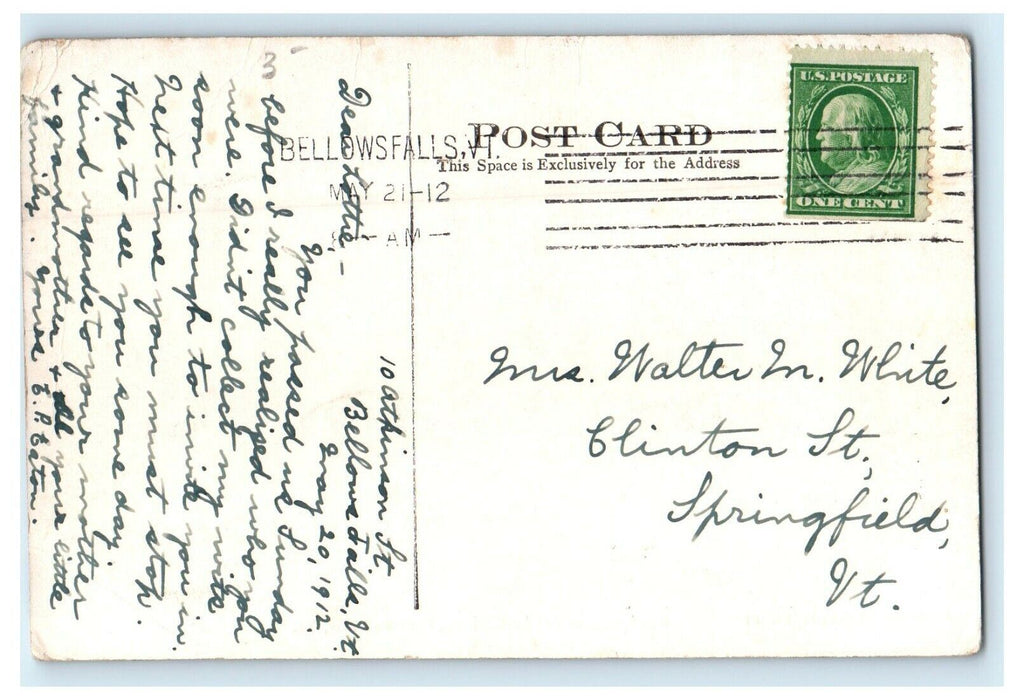 POST CARD
This Space is Exclusively for the Address
U.S. POSTAGE
ONE CENT
BELLOWS FALLS, VT.
MAY 21-12
8 - AM -
3
Mrs. Walter M. White,
Clinton St.,
Springfield,
Vt.
10 Atkinson St
Bellows Falls, Vt.
May 20, 1912.
Dear
You passed us Sunday
before I really realized who you
were. Didn't collect my wits
soon enough to invite you in.
Next time you must stop.
Hope to see you some day.
Kind regards to your mother
+ grandmother + all your little
family. Yours E. P. Eaton.